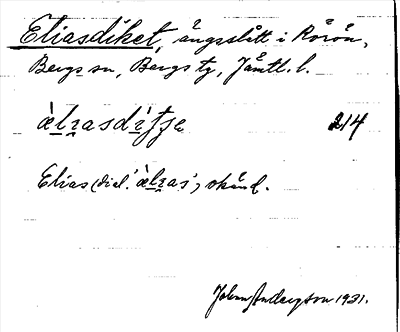 Eliasdiket, ängsslått i Rörön,
Bergs sn, Bergs tg, Jämtl. l.
àlɪasdɪ̀ʃʃe 214
Elias (dial. 'àlɪas'), okänd.
John Anderson 1931.